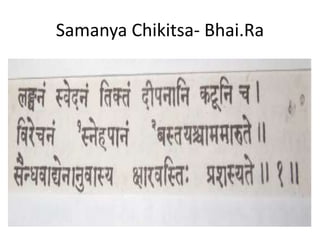 Samanya Chikitsa- Bhai.Ra
लङ्घनं स्वेदनं तिक्तं दीपनानि कटूनि च ।
विरेचनं १स्नेहपानं २बस्तयश्चाममारुते ॥
सैन्धवाद्येनानुवास्य क्षारवस्तिः प्रशस्यते ॥ १ ॥